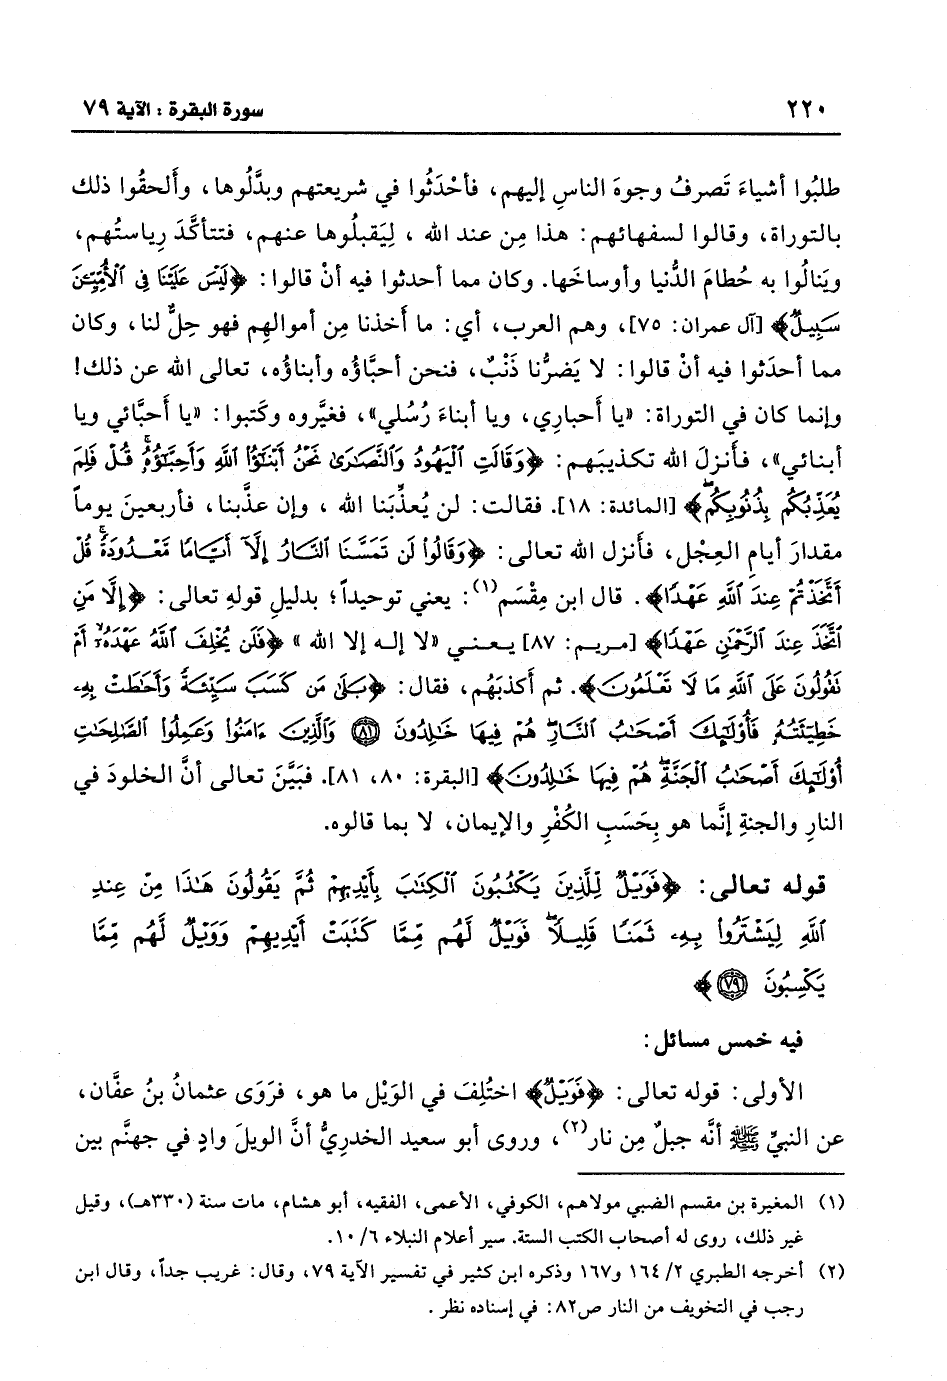 ٢٢٠ سورة البقرة : الآية ٧٩
طلبُوا أشياءَ تَصرفُ وجوهَ الناسِ إليهم، فأحْدَثُوا في شريعتهم وبدَّلُوها، وأَلحقُوا ذلك
بالتوراة، وقالوا لسفهائهم: هذا مِن عند الله ، لِيَقبلُوها عنهم، فتتأكَّدَ رِياستُهم،
ويَنالُوا به حُطامَ الدُّنيا وأوساخَها. وكان مما أحدثوا فيه أنْ قالوا: ﴿لَيْسَ عَلَيْنَا فِى ٱلْأُمِّيِّـۧنَ
سَبِيلٌ﴾ [آل عمران: ٧٥]، وهم العرب، أي: ما أَخذنا مِن أموالهِم فهو حِلٌّ لنا، وكان
مما أحدَثوا فيه أنْ قالوا: لا يَضرُّنا ذَنْبٌ، فنحن أحبَّاؤه وأبناؤُه، تعالى الله عن ذلك!
وإنما كان في التوراة: «يا أَحباري، ويا أبناءَ رُسُلي»، فغيَّروه وكَتبوا: «يا أحبَّائي ويا
أبنائي»، فأَنزلَ الله تكذيبَهم: ﴿وَقَالَتِ ٱلْيَهُودُ وَٱلنَّصَـٰرَىٰ نَحْنُ أَبْنَـٰٓؤُا۟ ٱللَّهِ وَأَحِبَّـٰٓؤُهُۥ ۚ قُلْ فَلِمَ
يُعَذِّبُكُم بِذُنُوبِكُم ۖ﴾ [المائدة: ١٨]. فقالت: لن يُعذِّبَنا الله ، وإن عذَّبنا، فأربعينَ يوماً
مقدارَ أيامِ العِجل، فأَنزل الله تعالى: ﴿وَقَالُوا۟ لَن تَمَسَّنَا ٱلنَّارُ إِلَّآ أَيَّامًا مَّعْدُودَةً ۚ قُلْ
أَتَّخَذْتُمْ عِندَ ٱللَّهِ عَهْدًا﴾. قال ابن مِقْسَم(١): يعني توحيداً؛ بدليلِ قولهِ تعالى: ﴿إِلَّا مَنِ
ٱتَّخَذَ عِندَ ٱلرَّحْمَـٰنِ عَهْدًا﴾ [مريم: ٨٧] يعني «لا إله إلا الله » ﴿فَلَن يُخْلِفَ ٱللَّهُ عَهْدَهُۥٓ ۖ أَمْ
تَقُولُونَ عَلَى ٱللَّهِ مَا لَا تَعْلَمُونَ﴾. ثم أكذبَهُم، فقال: ﴿بَلَىٰ مَن كَسَبَ سَيِّئَةً وَأَحَـٰطَتْ بِهِۦ
خَطِيٓـَٔتُهُۥ فَأُو۟لَـٰٓئِكَ أَصْحَـٰبُ ٱلنَّارِ ۖ هُمْ فِيهَا خَـٰلِدُونَ ۝٨١ وَٱلَّذِينَ ءَامَنُوا۟ وَعَمِلُوا۟ ٱلصَّـٰلِحَـٰتِ
أُو۟لَـٰٓئِكَ أَصْحَـٰبُ ٱلْجَنَّةِ ۖ هُمْ فِيهَا خَـٰلِدُونَ﴾ [البقرة: ٨٠، ٨١]. فبَيَّنَ تعالى أنَّ الخلودَ في
النارِ والجنةِ إنَّما هو بِحَسَبِ الكُفْرِ والإيمان، لا بما قالوه.
قوله تعالى: ﴿فَوَيْلٌ لِّلَّذِينَ يَكْتُبُونَ ٱلْكِتَـٰبَ بِأَيْدِيهِمْ ثُمَّ يَقُولُونَ هَـٰذَا مِنْ عِندِ
ٱللَّهِ لِيَشْتَرُوا۟ بِهِۦ ثَمَنًا قَلِيلًا ۖ فَوَيْلٌ لَّهُم مِّمَّا كَتَبَتْ أَيْدِيهِمْ وَوَيْلٌ لَّهُم مِّمَّا
يَكْسِبُونَ ۝٧٩﴾
فيه خمس مسائل:
الأولى: قوله تعالى: ﴿فَوَيْلٌ﴾ اختُلِفَ في الوَيْل ما هو، فرَوَى عثمانُ بنُ عفَّان،
عن النبيِّ ﷺ أنَّه جبلٌ مِن نار(٢)، وروى أبو سعيد الخدريُّ أنَّ الويلَ وادٍ في جهنَّم بين
(١) المغيرة بن مقسم الضبي مولاهم، الكوفي، الأعمى، الفقيه، أبو هشام، مات سنة (٣٣٠هـ)، وقيل
غير ذلك، روى له أصحاب الكتب الستة. سير أعلام النبلاء ٦/ ١٠.
(٢) أخرجه الطبري ٢/ ١٦٤ و١٦٧ وذكره ابن كثير في تفسير الآية ٧٩، وقال: غريب جداً، وقال ابن
رجب في التخويف من النار ص٨٢: في إسناده نظر .